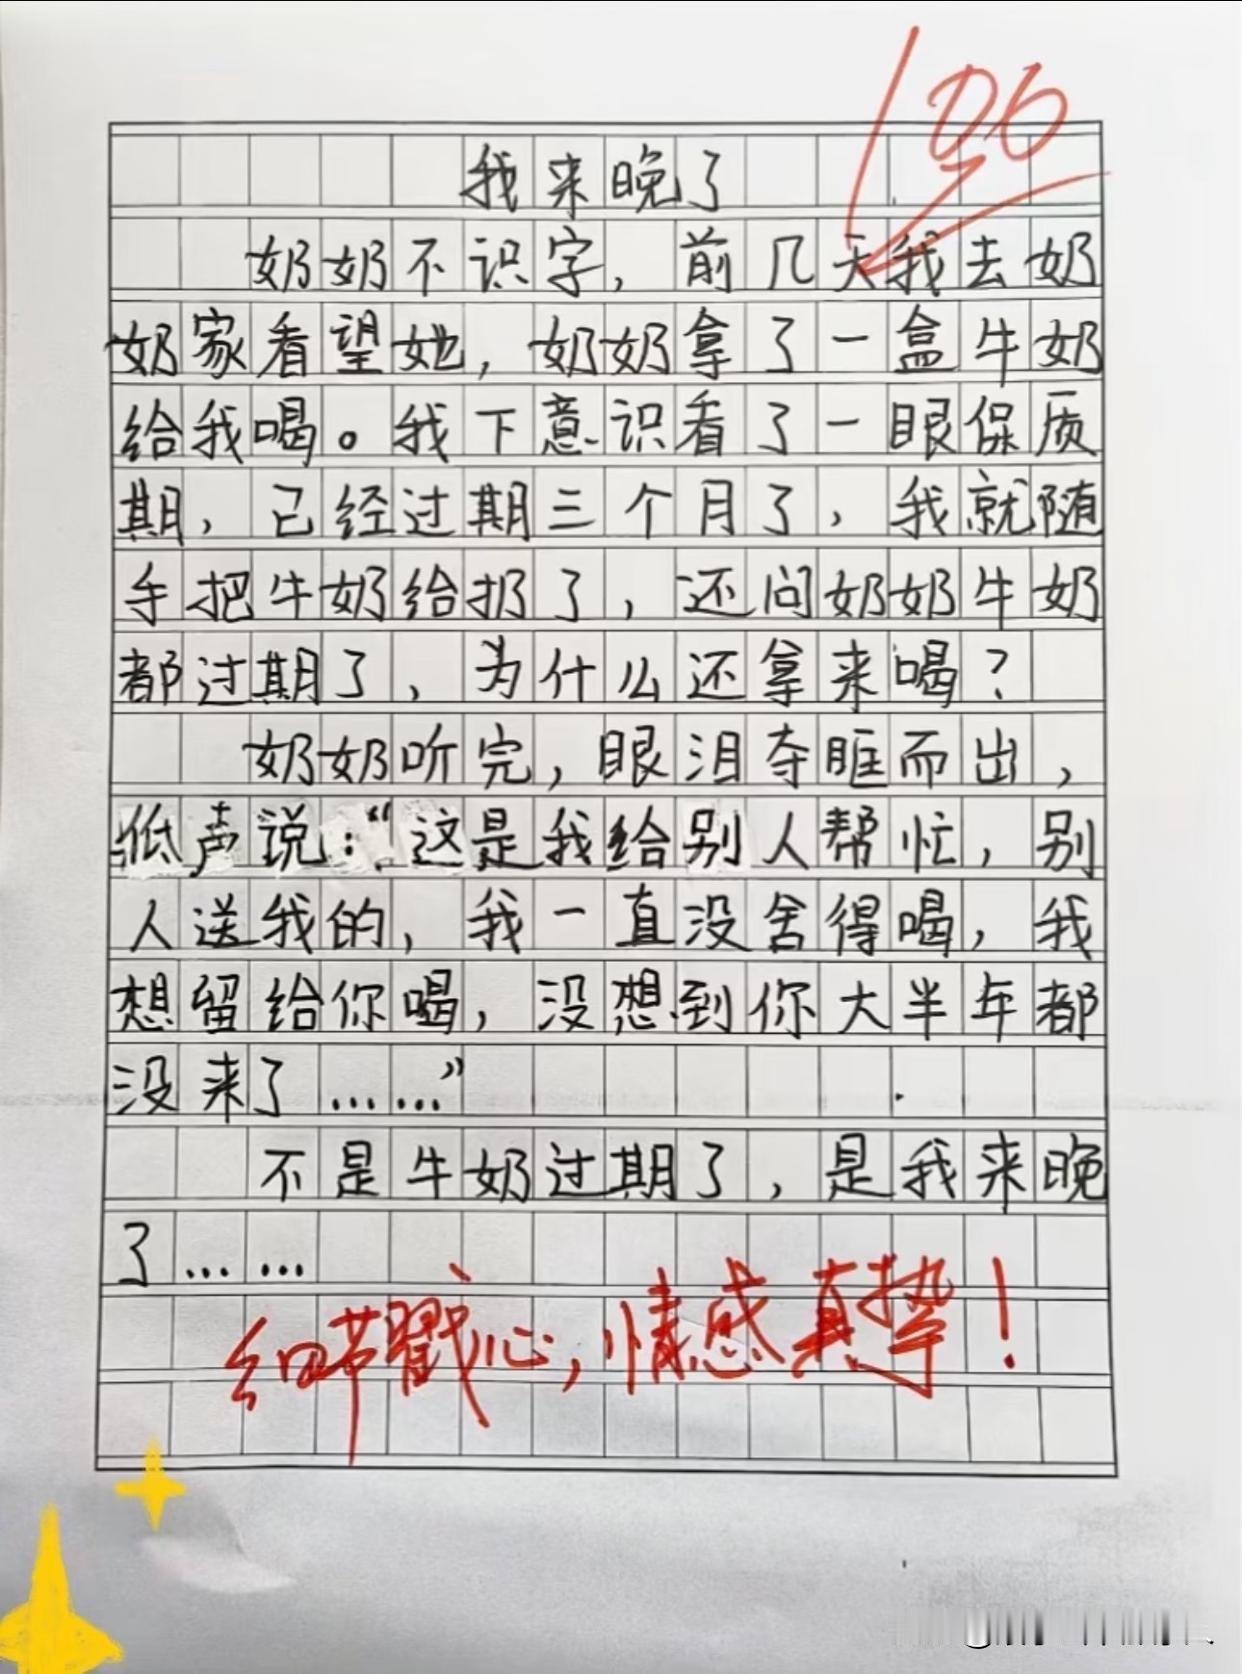 100
我来晚了
奶奶不识字，前几天我去奶
奶家看望她，奶奶拿了一盒牛奶
给我喝。我下意识看了一眼保质
期，已经过期三个月了，我就随
手把牛奶给扔了，还问奶奶牛奶
都过期了，为什么还拿来喝？
奶奶听完，眼泪夺眶而出，
低声说：“这是我给别人帮忙，别
人送我的，我一直没舍得喝，我
想留给你喝，没想到你大半年都
没来了……”
不是牛奶过期了，是我来晚
了……
细节戳心，情感真挚！